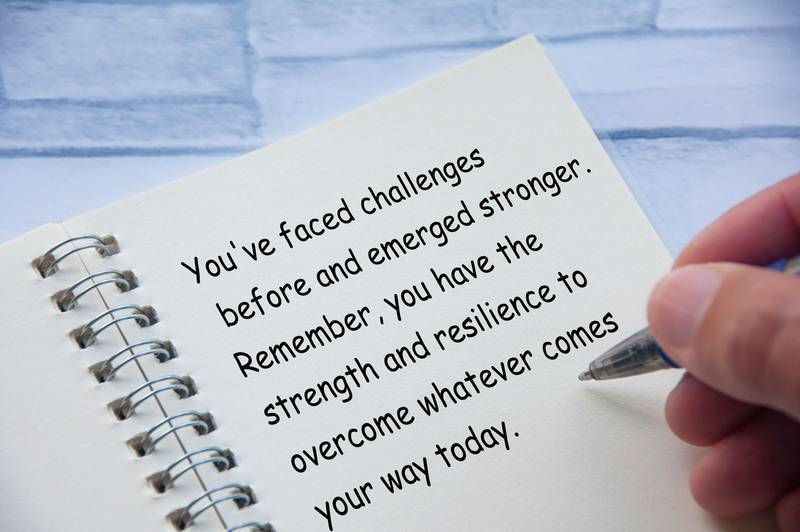 You've faced challenges
before and emerged stronger.
Remember, you have the
strength and resilience to
overcome whatever comes
your way today.